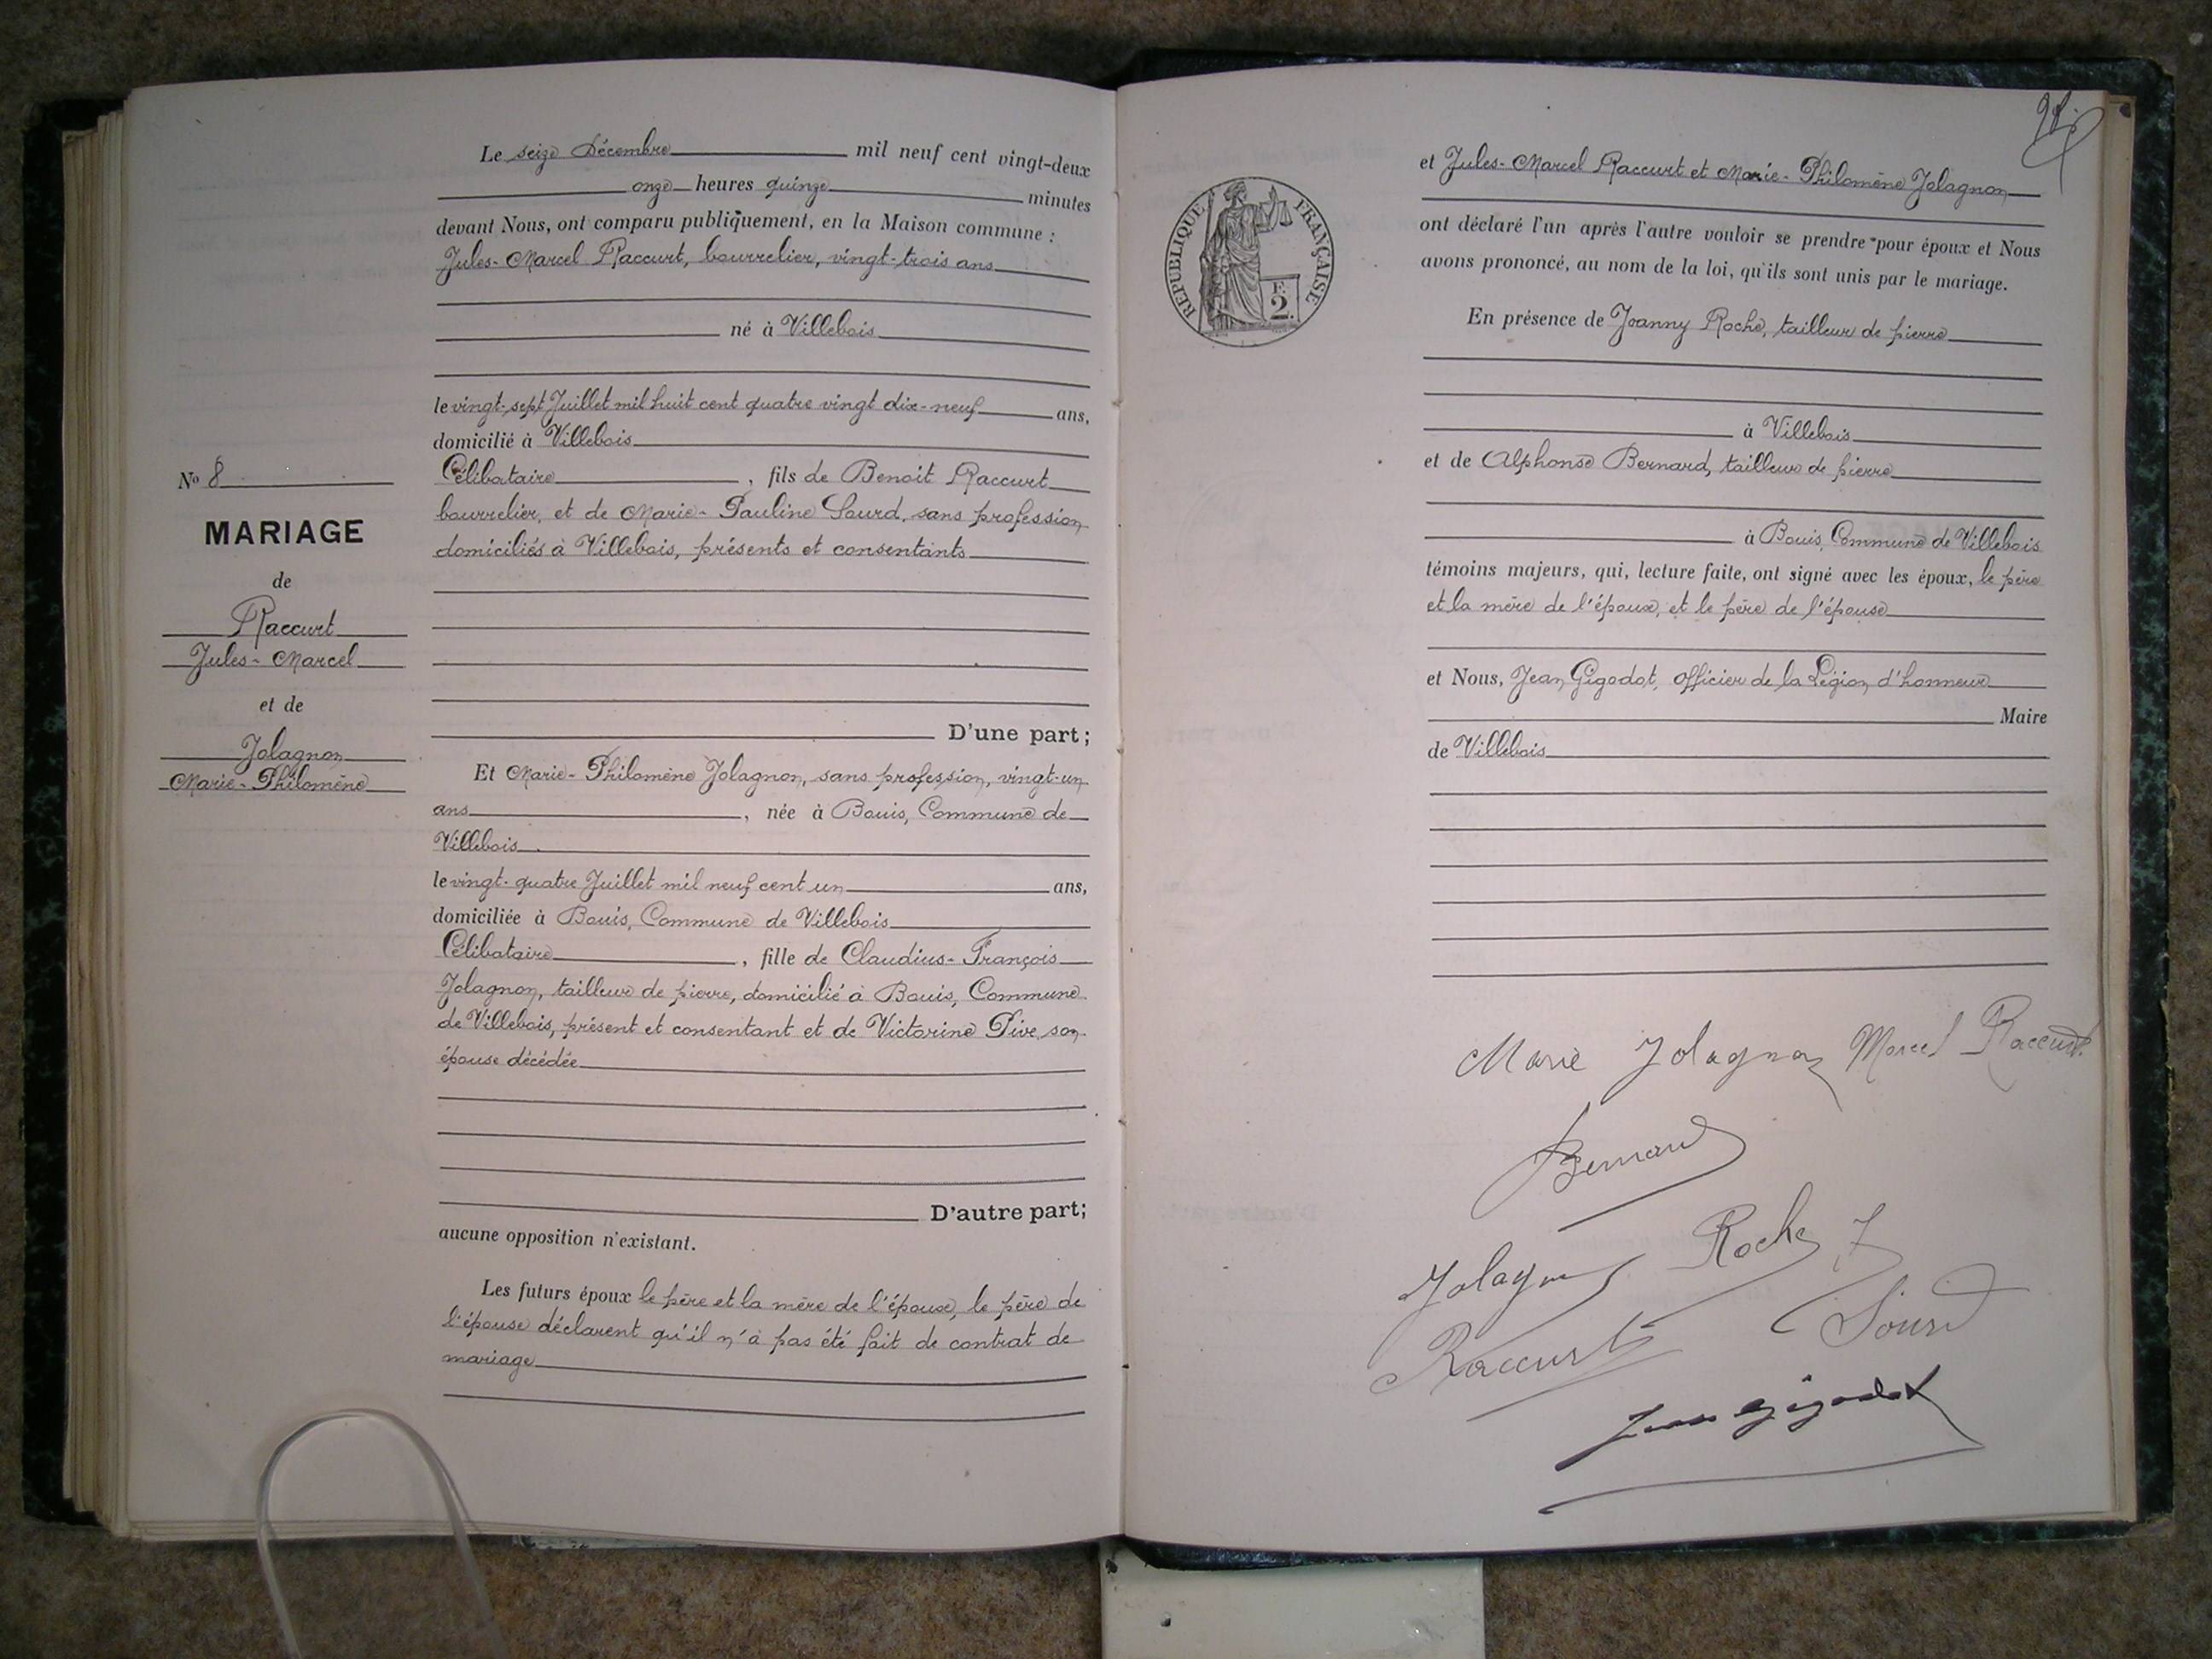 Le seize Décembre mil neuf cent vingt-deux
onze heures quinze minutes
devant Nous, ont comparu publiquement, en la Maison commune :
Jules-Marcel Raccurt, bourrelier, vingt-trois ans
né à Villebois
le vingt-sept Juillet mil huit cent quatre vingt dix-neuf ans,
domicilié à Villebois
Célibataire , fils de Benoit Raccurt
bourrelier, et de Marie-Pauline Sourd, sans profession
domiciliés à Villebois, présents et consentants
D'une part ;
Et Marie-Philomène Jolagnon, sans profession, vingt-un
ans , née à Bouis, Commune de
Villebois
le vingt-quatre Juillet mil neuf cent un ans,
domiciliée à Bouis, Commune de Villebois
Célibataire , fille de Claudius-François
Jolagnon, tailleur de pierre, domicilié à Bouis, Commune
de Villebois, présent et consentant et de Victorine Pive son
épouse décédée
D'autre part;
aucune opposition n'existant.
Les futurs époux le père et la mère de l'époux, le père de
l'épouse déclarent qu'il n'a pas été fait de contrat de
mariage
No 8
MARIAGE
de
Raccurt
Jules-Marcel
et de
Jolagnon
Marie-Philomène
RÉPUBLIQUE FRANÇAISE
F.
2.
et Jules-Marcel Raccurt et Marie-Philomène Jolagnon
ont déclaré l'un après l'autre vouloir se prendre pour époux et Nous
avons prononcé, au nom de la loi, qu'ils sont unis par le mariage.
En présence de Joanny Roche, tailleur de pierre
à Villebois
et de Alphonse Bernard, tailleur de pierre
à Bouis, Commune de Villebois
témoins majeurs, qui, lecture faite, ont signé avec les époux, le père
et la mère de l'époux, et le père de l'épouse
et Nous, Jean Gigodot, officier de la Légion d'honneur
Maire
de Villebois
Marie Jolagnon Marcel Raccurt
Bernard
Roche J
Jolagnon
Sourd
Raccurt
Jean Gigodot